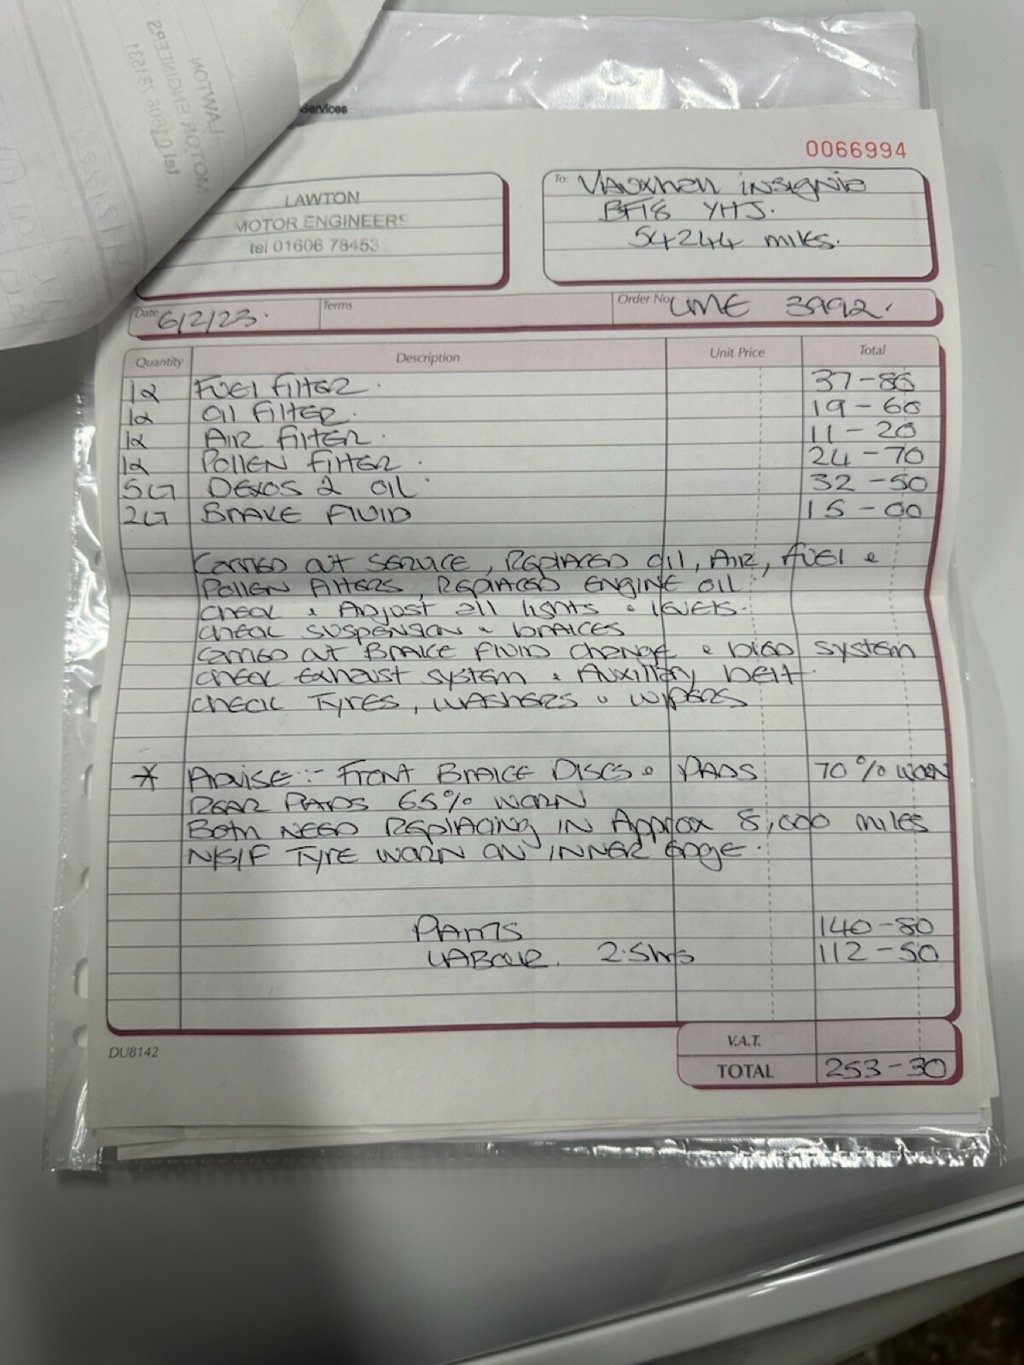 LAWTON
MOTOR ENGINEERS
Services
0066994
LAWTON
MOTOR ENGINEERS
tel 01606 78453
To: Vauxhall insignia
BF18 YHJ.
54244 miles.
Date 6/2/23.
Terms
Order No UME 3992.
Quantity Description Unit Price Total
1x Fuel Filter. 37-86
1x Oil Filter. 19-60
1x Air Filter. 11-20
1x Pollen Filter. 24-70
5L Dexos 2 Oil. 32-50
2L Brake Fluid 15-00
Carried out service, Replaced oil, Air, fuel &
Pollen filters, Replaced engine oil
check & Adjust all lights & levels.
check suspension & brakes
carried out Brake fluid change & bled system
check exhaust system & Auxillary belt.
check Tyres, washers & wipers
* Advise:- Front Brake Discs & Pads 70% worn
Rear Pads 65% worn
Both need replacing in Approx 8,000 miles
N/S/F Tyre worn on inner edge.
Parts 140-80
Labour. 2.5hrs 112-50
V.A.T.
DU8142
TOTAL 253-30